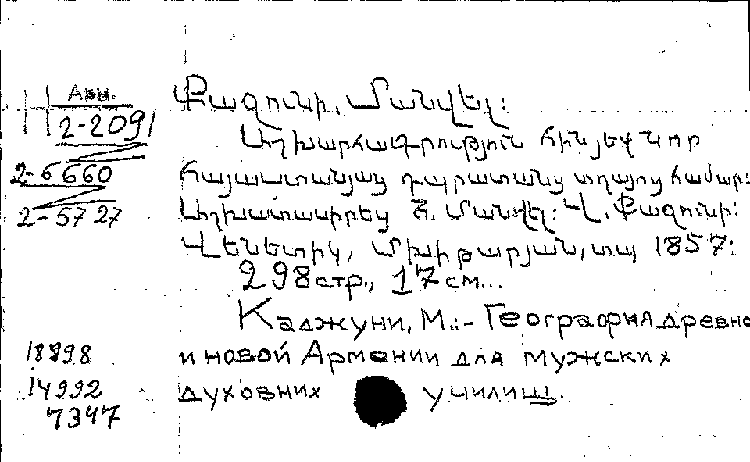 Арм.
2-2091
2-6660
2-5727
Քաջունի, Մանվել:
Աշխարհագրություն հին եվ նոր
հայաստանյայց դպրատանց տղայոց համար:
Աշխատասիրեց Հ. Մանվել: Վ. Քաջունի:
Վենետիկ, Մխիթարյան, տպ 1857:
298 стр., 17 см...
Каджуни, М.:- География древней
и новой Армении для мужских
духовних училищ.
18898
14992
7347